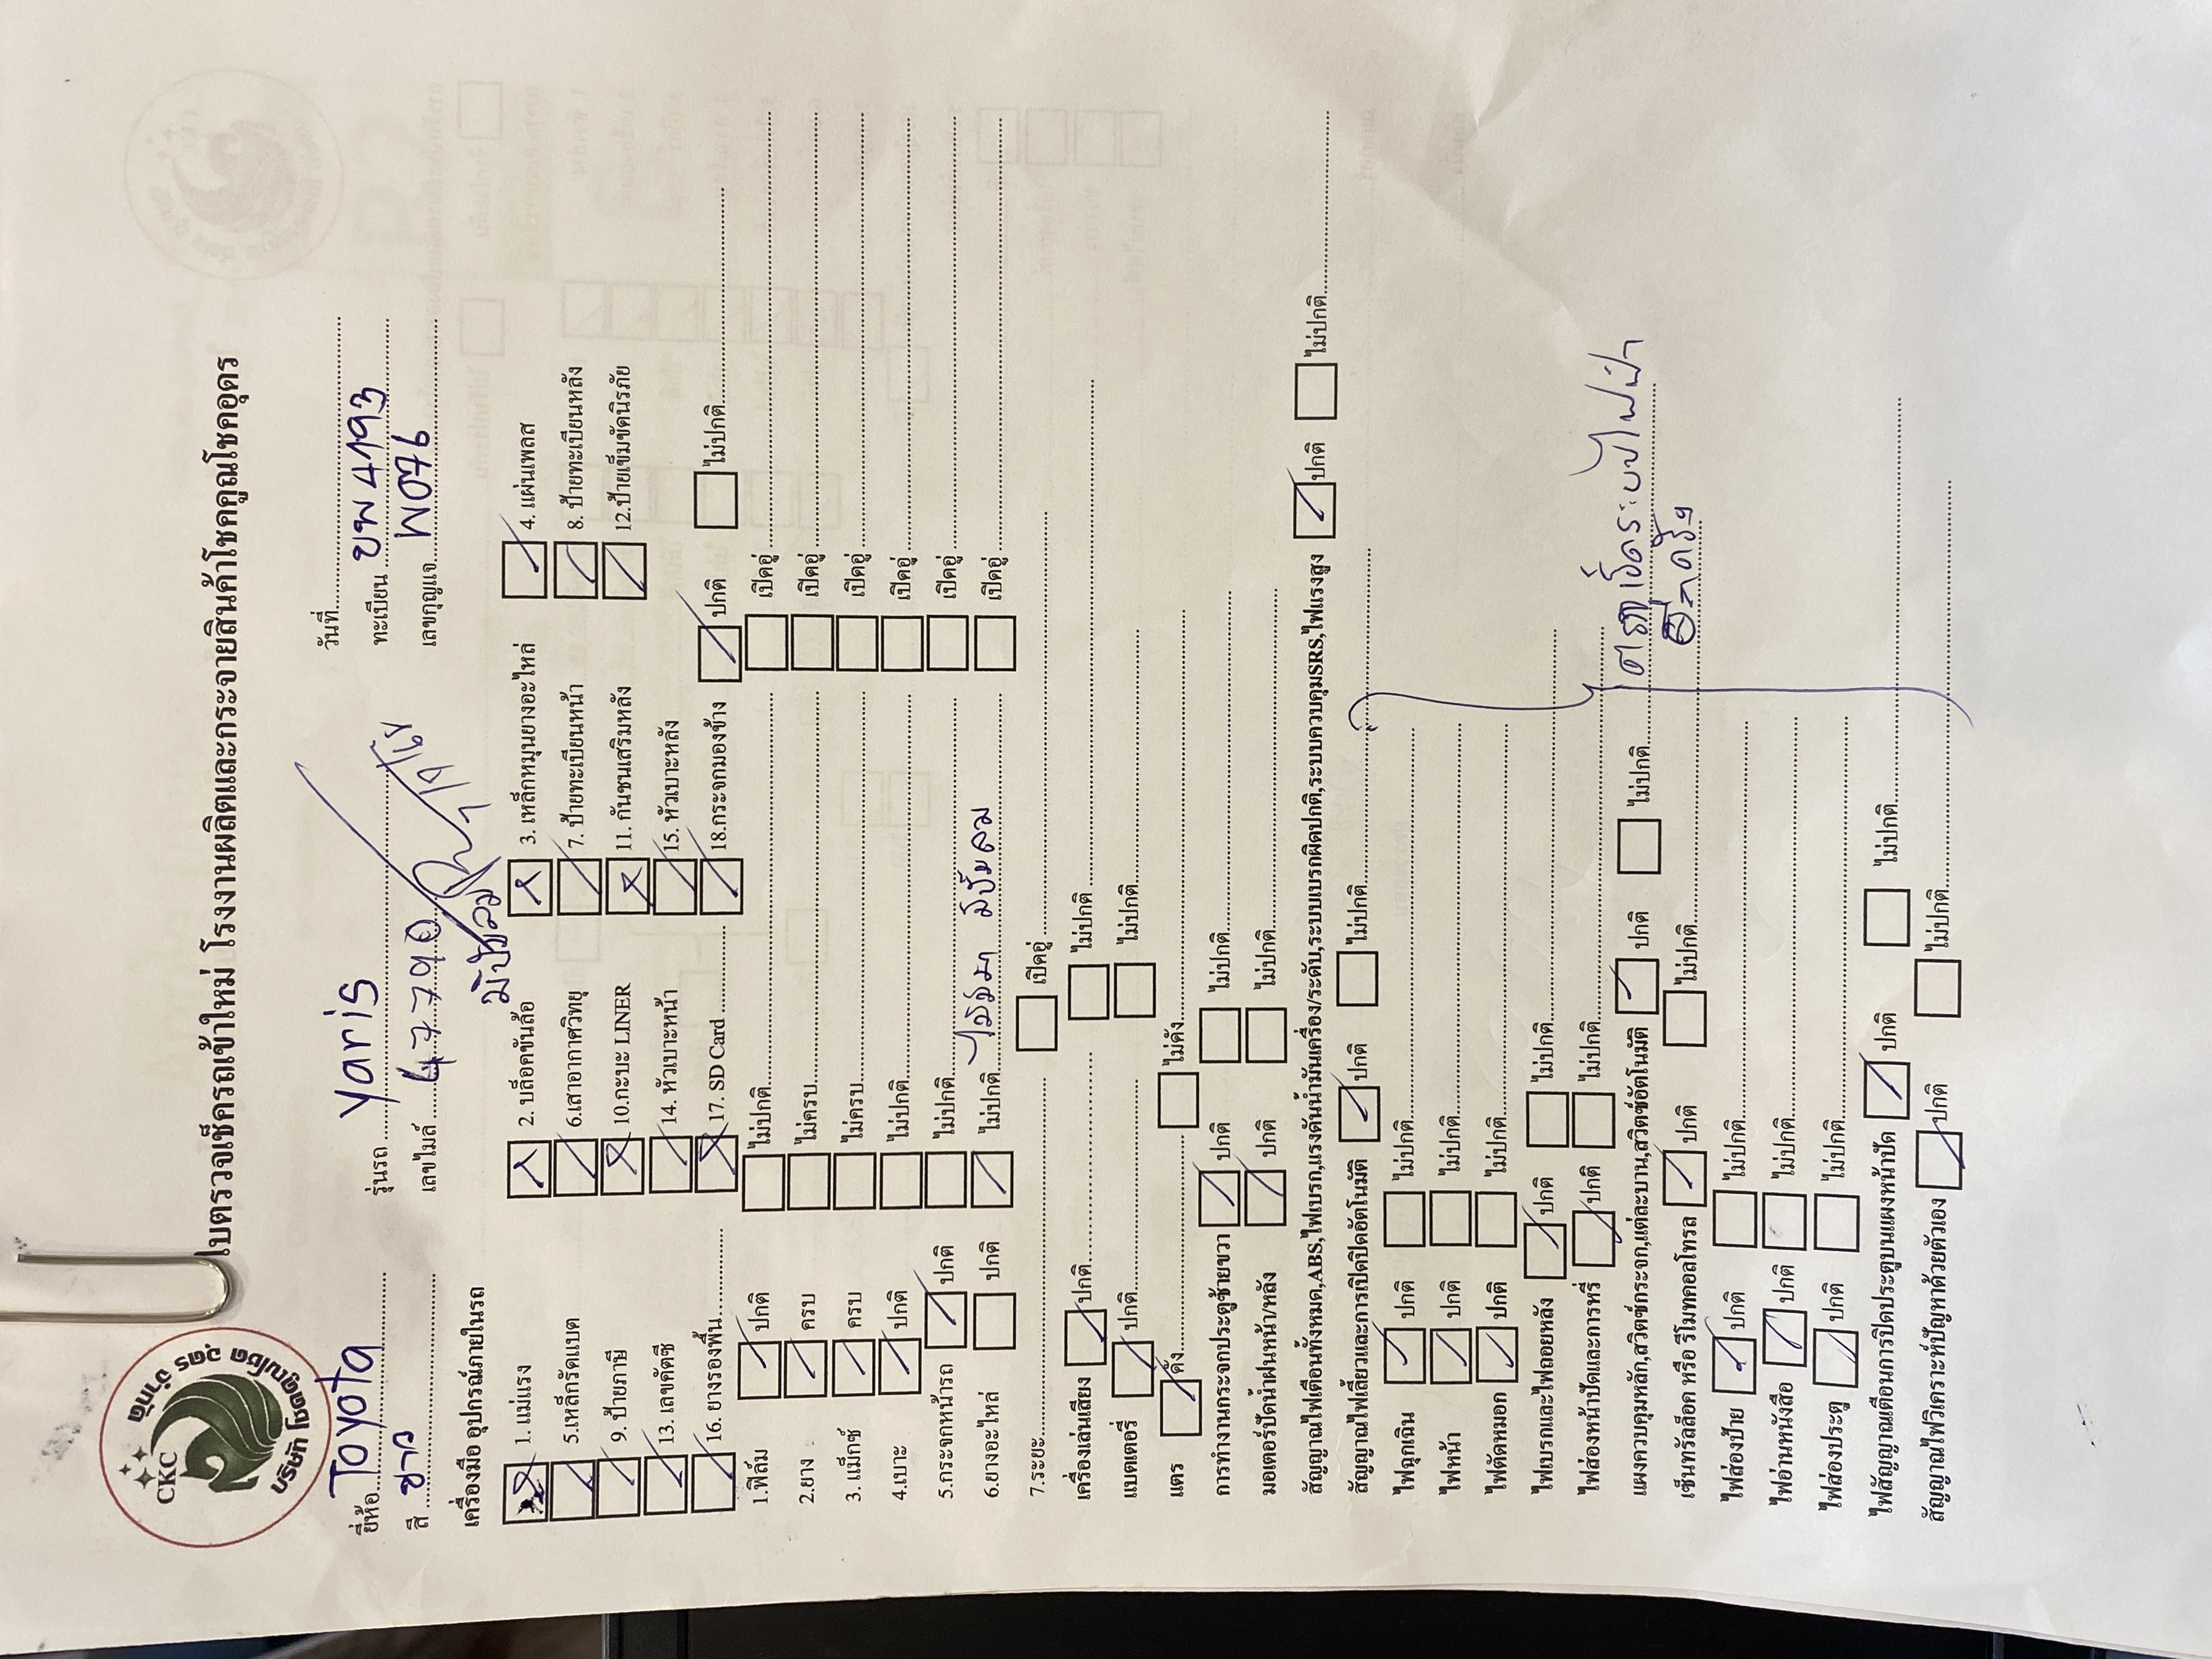 CKC
บริษัท โชคคูณโชค อุดร จำกัด
ใบตรวจเช็ครถเข้าใหม่ โรงงานผลิตและกระจายสินค้าโชคคูณโชคอุดร
ยี่ห้อ Toyota รุ่นรถ Yaris วันที่
สี ขาว เลขไมล์ 47790 ทะเบียน ขพ 4793
เลขกุญแจ
เครื่องมือ อุปกรณ์ภายในรถ มีปั๊มลม
1. แม่แรง 2. บล็อคขันล้อ 3. เหล็กหมุนยางอะไหล่ 4. แผ่นเพลส
5.เหล็กรัดแบต 6.เสาอากาศวิทยุ 7. ป้ายทะเบียนหน้า 8. ป้ายทะเบียนหลัง
9. ป้ายภาษี 10.กะบะ LINER 11. กันชนเสริมหลัง 12.ป้ายเข็มขัดนิรภัย
13. เลขคัตซี 14. หัวเบาะหน้า 15. หัวเบาะหลัง
16. ยางรองพื้น 17. SD Card 18.กระจกมองข้าง ปกติ ไม่ปกติ
1.ฟิล์ม ปกติ ไม่ปกติ เปิดอู่
2.ยาง ครบ ไม่ครบ เปิดอู่
3. แม็กซ์ ครบ ไม่ครบ เปิดอู่
4.เบาะ ปกติ ไม่ปกติ เปิดอู่
5.กระจกหน้ารถ ปกติ ไม่ปกติ เปิดอู่
6.ยางอะไหล่ ปกติ ไม่ปกติ มีปั๊มลม เปิดอู่
7.ระยะ เปิดอู่
เครื่องเล่นเสียง ปกติ ไม่ปกติ
แบตเตอรี่ ปกติ ไม่ปกติ
แตร ดัง ไม่ดัง
การทำงานกระจกประตูซ้ายขวา ปกติ ไม่ปกติ
มอเตอร์ปัดน้ำฝนหน้า/หลัง ปกติ ไม่ปกติ
สัญญาณไฟเตือนทั้งหมด,ABS,ไฟเบรก,แรงดันน้ำมันเครื่อง/ระดับ,ระบบเบรกผิดปกติ,ระบบควบคุมSRS,ไฟแรงสูง ปกติ ไม่ปกติ
สัญญาณไฟเลี้ยวและการเปิดปิดอัตโนมัติ ปกติ ไม่ปกติ
ไฟฉุกเฉิน ปกติ ไม่ปกติ
ไฟหน้า ปกติ ไม่ปกติ
ไฟตัดหมอก ปกติ ไม่ปกติ
ไฟเบรกและไฟถอยหลัง ปกติ ไม่ปกติ
ไฟส่องหน้าปัดและการหรี่ ปกติ ไม่ปกติ
แผงควบคุมหลัก,สวิตซ์กระจก,แต่ละบาน,สวิตซ์อัตโนมัติ ปกติ ไม่ปกติ
เซ็นทรัลล็อค หรือ รีโมทคอลโทรล ปกติ ไม่ปกติ
ไฟส่องป้าย ปกติ ไม่ปกติ
ไฟอ่านหนังสือ ปกติ ไม่ปกติ
ไฟส่องประตู ปกติ ไม่ปกติ
ไฟสัญญาณเตือนการปิดประตูบนแผงหน้าปัด ปกติ ไม่ปกติ
สัญญาณไฟวิเคราะห์ปัญหาด้วยตัวเอง ปกติ ไม่ปกติ